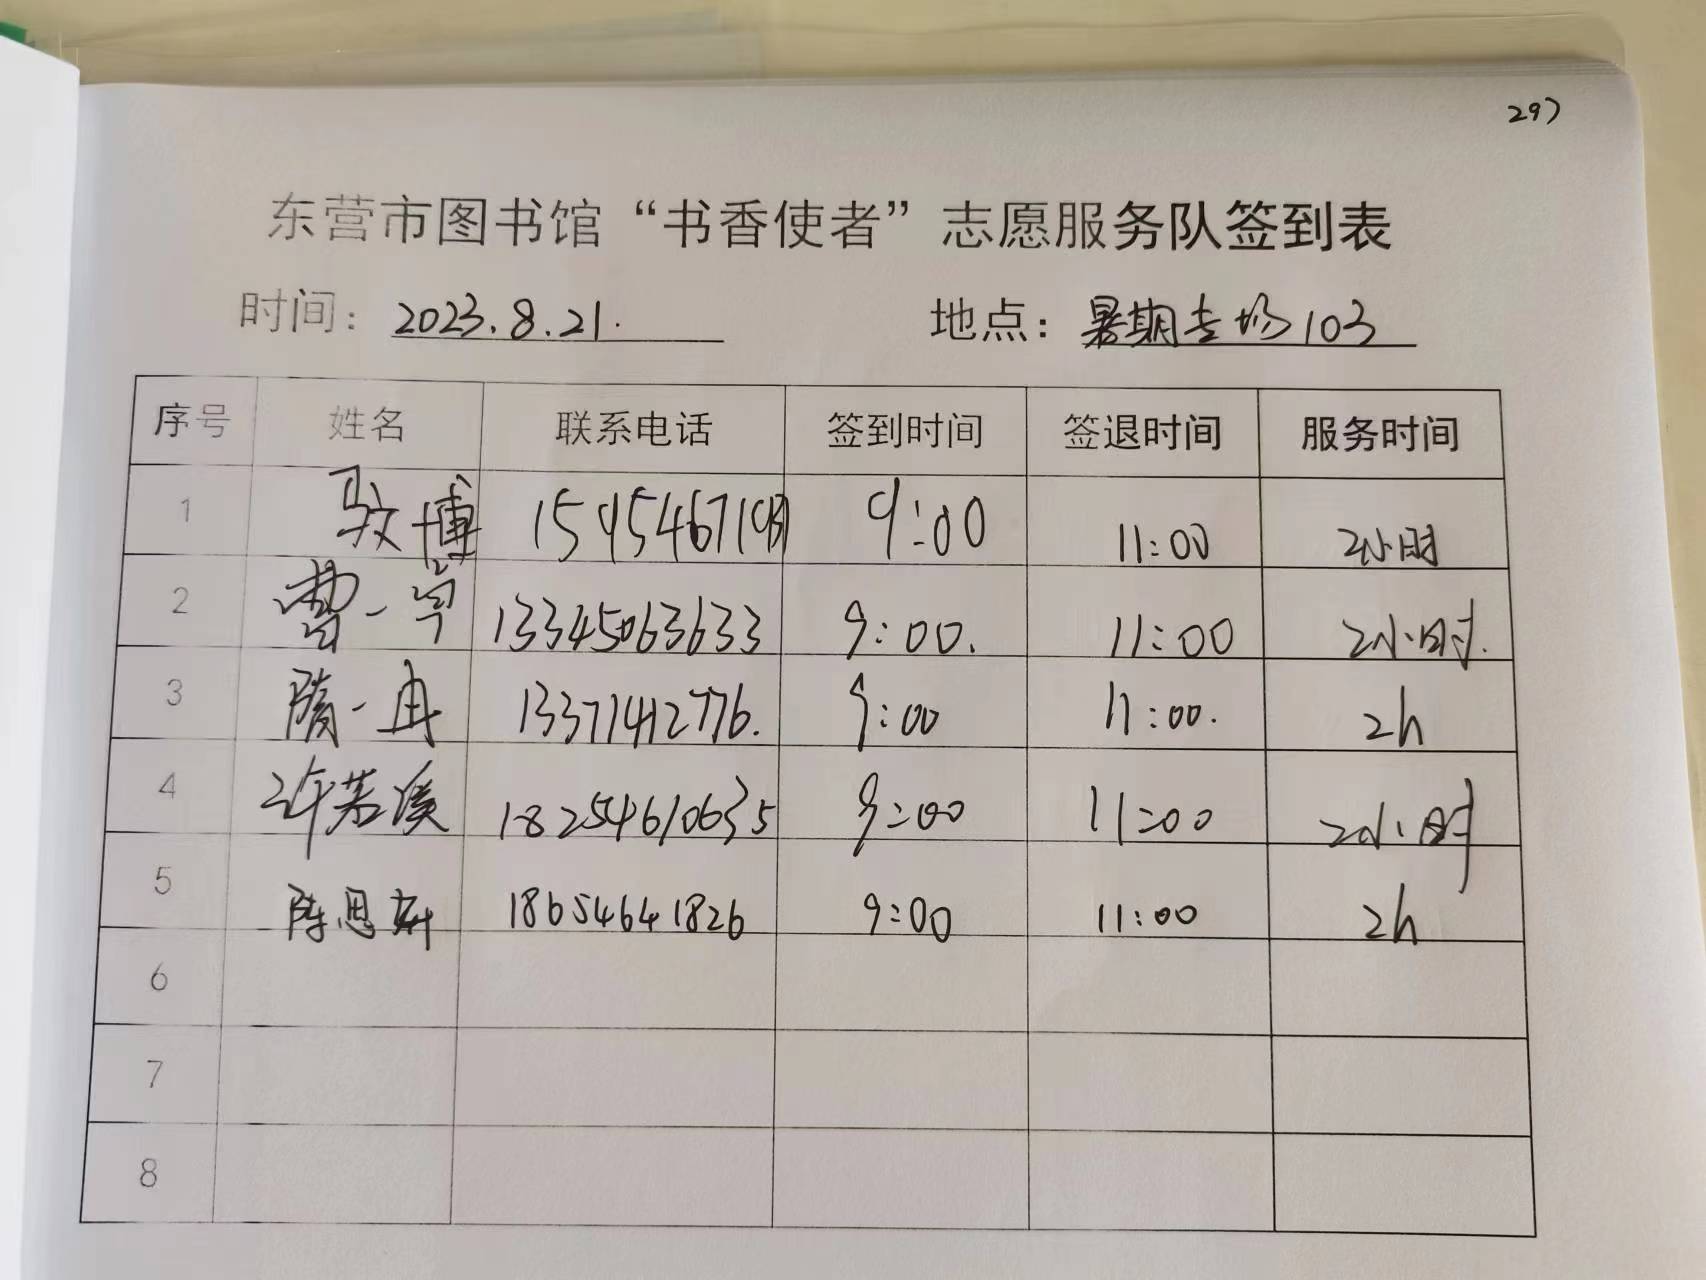 297
东营市图书馆“书香使者”志愿服务队签到表
时间：2023.8.21. 地点：暑期专场103
序号 姓名 联系电话 签到时间 签退时间 服务时间
1 博 9:00 11:00 2小时
2 曹一 13345063633 9:00. 11:00 2小时.
3 隋一冉 13371412776. 9:00 11:00. 2h
4 许若溪 18254610635 9:00 11:00 2小时
5 陈思妍 18654641826 9:00 11:00 2h
6
7
8